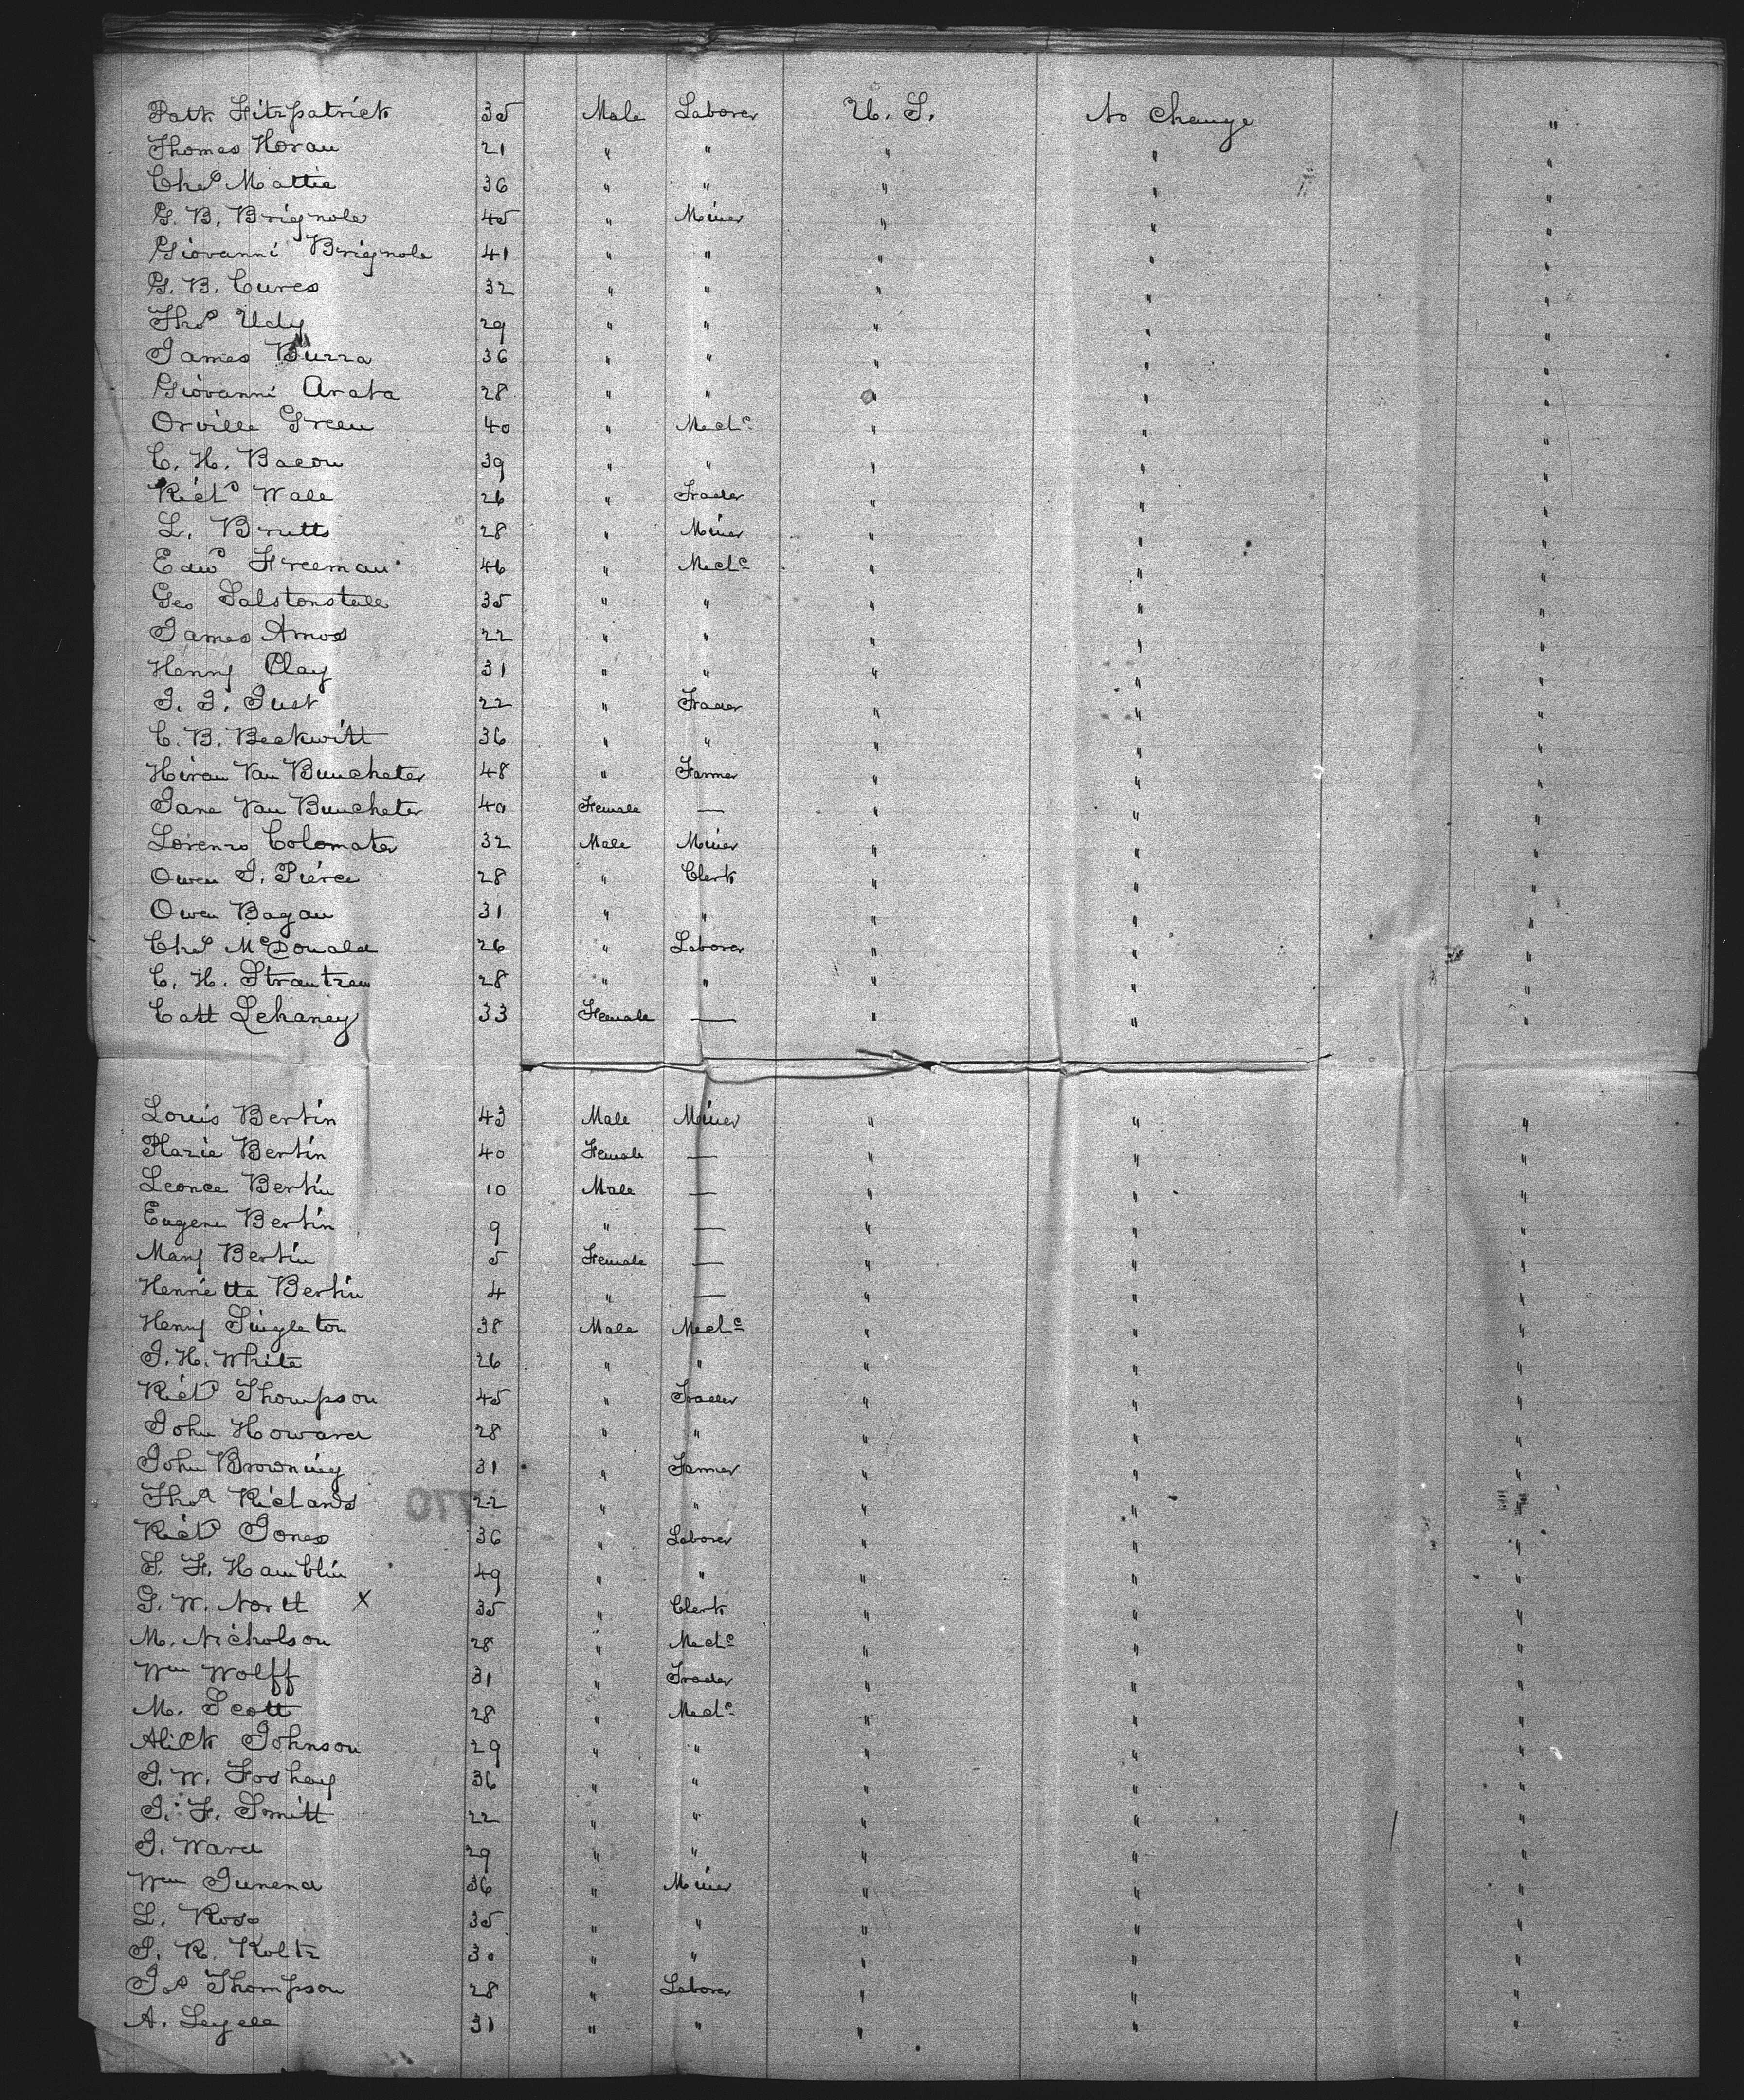 Patk Fitzpatrick 35 Male Laborer U. S. No Change "
Thomas Horan 21 " " " " "
Chas Mattie 36 " " " " "
G. B. Brignole 45 " Miner " " "
Giovanni Brignole 41 " " " " "
G. B. Cures 32 " " " " "
Thos Udy 29 " " " " "
James Burra 36 " " " " "
Giovanni Arata 28 " " " " "
Orville Green 40 " Mechc " " "
C. H. Bacon 39 " " " " "
Richd Wall 26 " Trader " " "
L. Brutts 28 " Miner " " "
Edwd Freeman 46 " Mechc " " "
Geo Salstonstall 35 " " " " "
James Amos 22 " " " " "
Henry Clay 31 " " " " "
J. J. Just 22 " Trader " " "
C. B. Beckwith 36 " " " " "
Hiram Van Buncheter 48 " Farmer " " "
Jane Van Buncheter 40 Female — " " "
Lorenzo Colomater 32 Male Miner " " "
Owen J. Pierce 28 " Clerk " " "
Owen Bagan 31 " " " " "
Chas McDonald 26 " Laborer " " "
C. H. Strautzen 28 " " " " "
Cath Lehaney 33 Female — " " "
Louis Bertin 43 Male Miner " " "
Marie Bertin 40 Female — " " "
Leonce Bertin 10 Male — " " "
Eugene Bertin 9 " — " " "
Mary Bertin 5 Female — " " "
Henrietta Bertin 4 " — " " "
Henry Singleton 38 Male Mechc " " "
J. H. White 26 " " " " "
Richd Thompson 45 " Trader " " "
John Howard 28 " " " " "
John Browning 31 " Farmer " " "
Thos Richards 22 " " " " "
Richd Jones 36 " Laborer " " "
S. F. Hamblin 49 " " " " "
G. W. North X 35 " Clerk " " "
M. Nicholson 28 " Mechc " " "
Wm Wolff 31 " Trader " " "
M. Scott 28 " Mechc " " "
Alick Johnson 29 " " " " "
J. W. Foshay 36 " " " " "
J. F. Smith 22 " " " " "
J. Ward 29 " " " " "
Wm Junend 36 " Miner " " "
L. Ross 35 " " " " "
J. R. Koltz 30 " " " " "
Jos Thompson 28 " Laborer " " "
A. Leyell 31 " " " " "